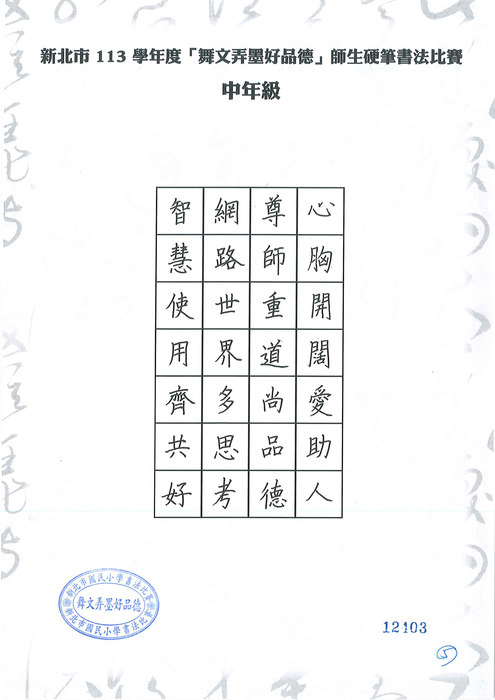 新北市 113 學年度「舞文弄墨好品德」師生硬筆書法比賽
中年級
心胸開闊愛助人
尊師重道尚品德
網路世界多思考
智慧使用齊共好
新北市國民小學書法比賽
舞文弄墨好品德
新北市國民小學書法比
12103
5